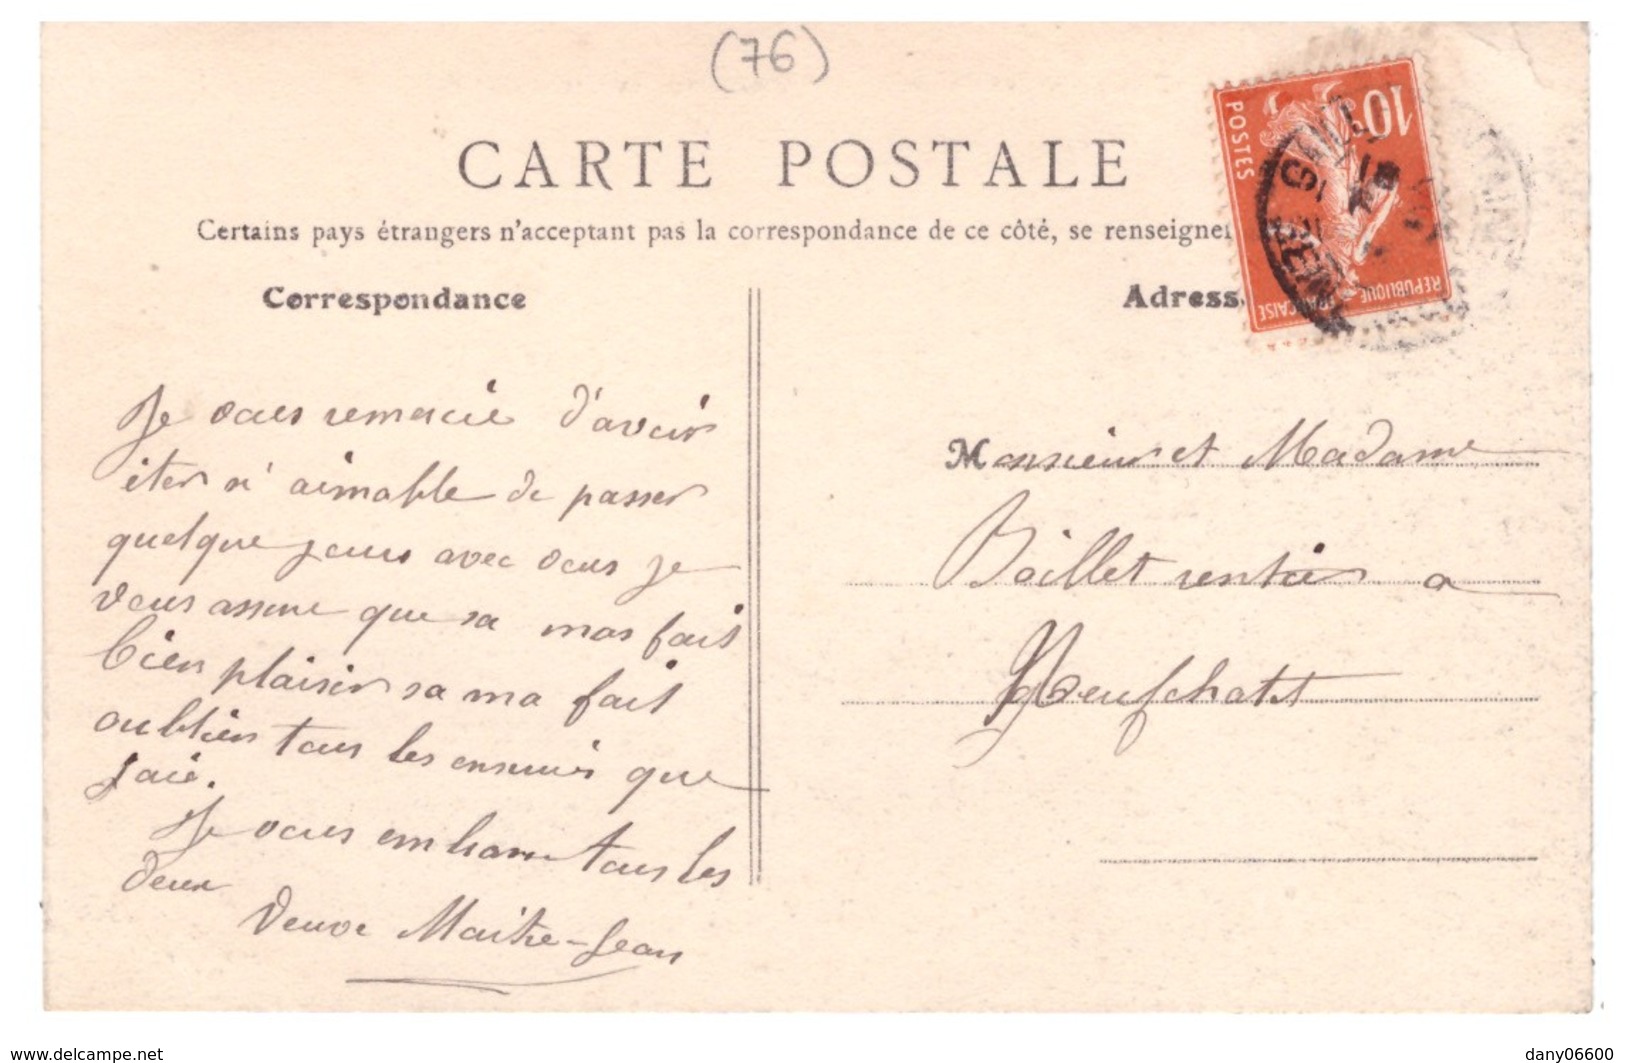 (76)
CARTE POSTALE
Certains pays étrangers n'acceptant pas la correspondance de ce côté, se renseigner
Correspondance
Adress
10c
POSTES
REPUBLIQUE FRANÇAISE
Je vous remercie d'avoir
iter si aimable de passer
quelque jours avec vous je
vous assure que sa mas fait
bien plaisir sa ma fait
oublier tous les ennuis que
jaie.
Je vous embrasse tous les
deux
Veuve Maitre-Jean
Monsieur et Madame
Boillet rentier a
Neufchatel
www.delcampe.net
dany06600